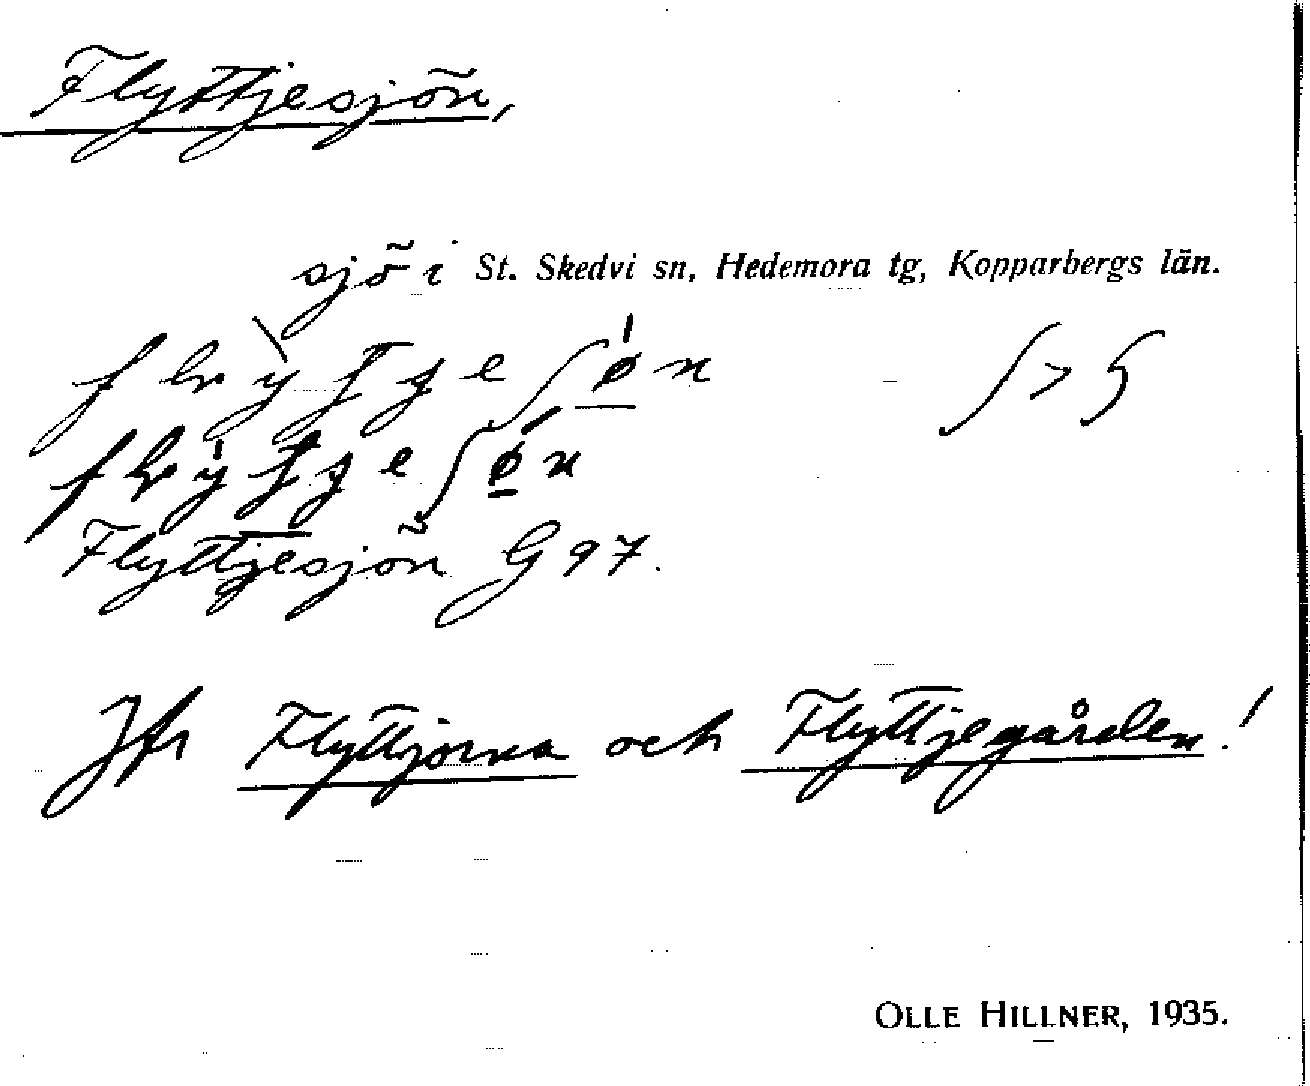 Flyttjesjön,
sjö i St. Skedvi sn, Hedemora tg, Kopparbergs län.
ʃ > ʂ
Flyttjesjön G 97.
Jfr Flyttjorna och Flyttjegården!
OLLE HILLNER, 1935.